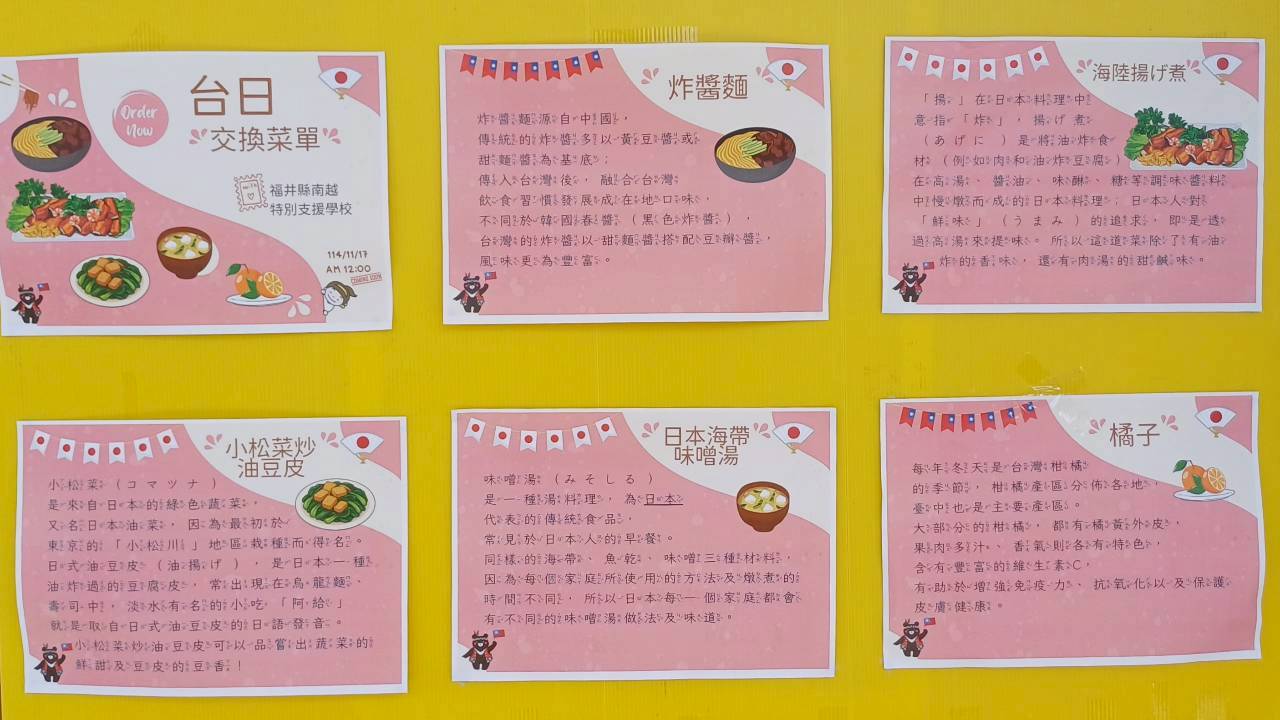 Order
Now
台日
交換菜單
福井縣南越
特別支援學校
114/11/17
AM 12:00
COMING SOON
炸醬麵
炸醬麵源自中國，
傳統的炸醬多以黃豆醬或
甜麵醬為基底；
傳入台灣後，融合台灣
飲食習慣發展成在地口味，
不同於韓國春醬（黑色炸醬），
台灣的炸醬以甜麵醬搭配豆瓣醬，
風味更為豐富。
海陸揚げ煮
「揚」在日本料理中
意指「炸」，揚げ煮
（あげに）是將油炸食
材（例如肉和油炸豆腐）
在高湯、醬油、味醂、糖等調味醬料
中慢燉而成的日本料理；日本人對
「鮮味」（うまみ）的追求，即是透
過高湯來提味。所以這道菜除了有油
炸的香味，還有肉湯的甜鹹味。
小松菜炒
油豆皮
小松菜（コマツナ）
是來自日本的綠色蔬菜，
又名日本油菜，因為最初於
東京的「小松川」地區栽種而得名。
日式油豆皮（油揚げ），是日本一種
油炸過的豆腐皮，常出現在烏龍麵、
壽司中，淡水有名的小吃「阿給」
就是取自日式油豆皮的日語發音。
小松菜炒油豆皮可以品嘗出蔬菜的
鮮甜及豆皮的豆香！
日本海帶
味噌湯
味噌湯（みそしる）
是一種湯料理，為日本
代表的傳統食品，
常見於日本人的早餐。
同樣的海帶、魚乾、味噌三種材料，
因為每個家庭所使用的方法及燉煮的
時間不同，所以日本每一個家庭都會
有不同的味噌湯做法及味道。
橘子
每年冬天是台灣柑橘
的季節，柑橘產區分佈各地，
臺中也是主要產區。
大部分的柑橘，都有橘黃外皮，
果肉多汁、香氣則各有特色，
含有豐富的維生素C，
有助於增強免疫力、抗氧化以及保護
皮膚健康。